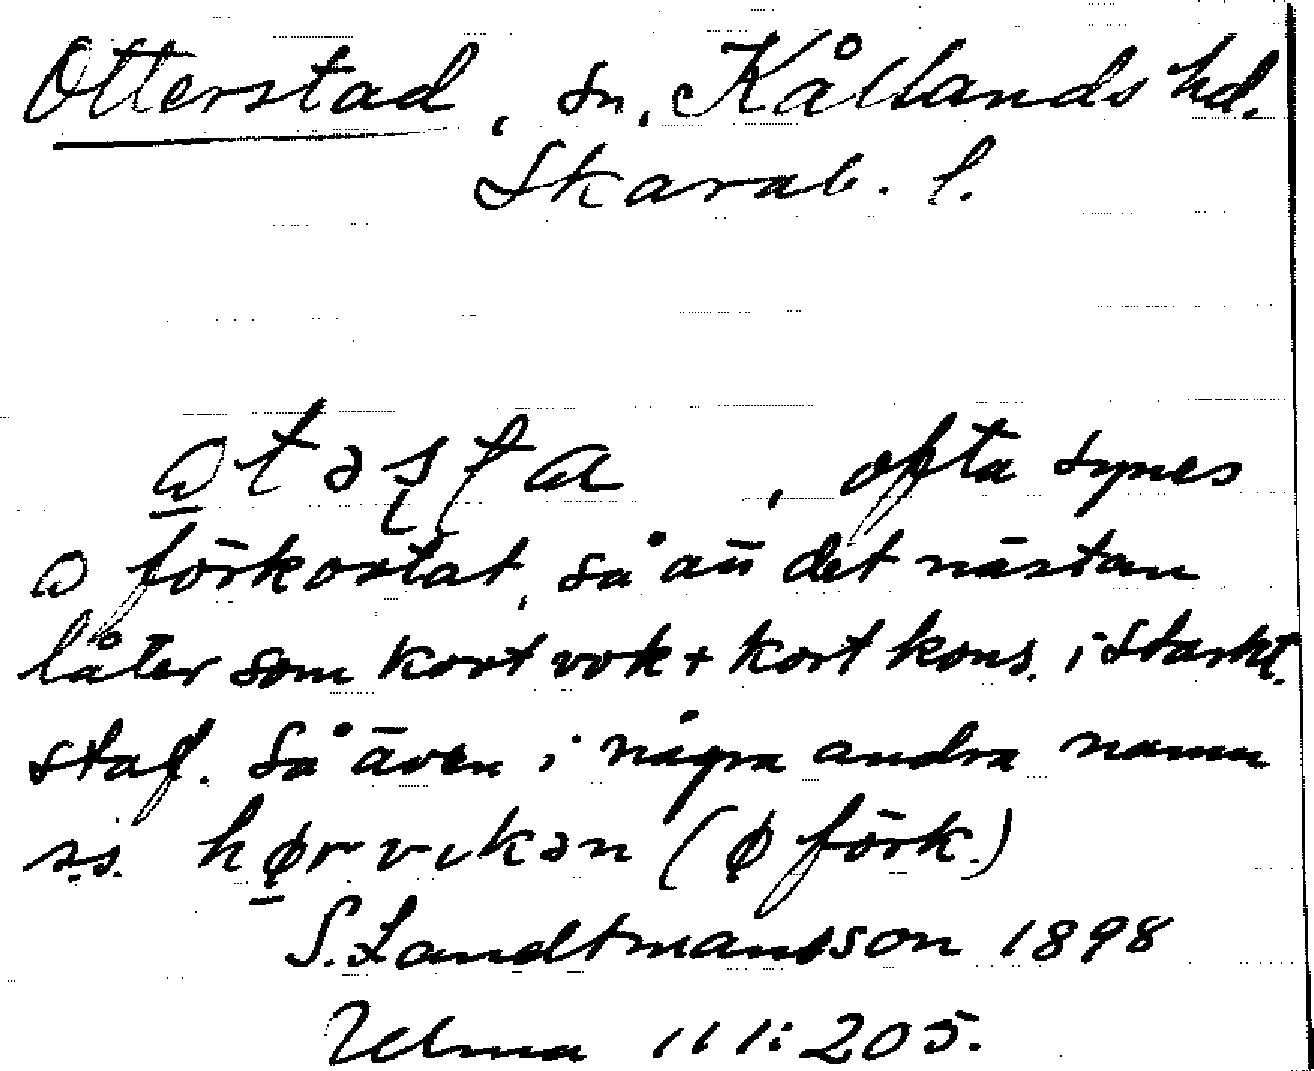 Otterstad, sn, Kållands hd.
Skarab. l.
, ofta synes
förkortat, så att det nästan
låter som kort vok + kort kons. i starkt.
staf. Så även i några andra namn
s.s. hørvikən (ø förk.)
S. Landtmansson 1898
Ulma 111:205.